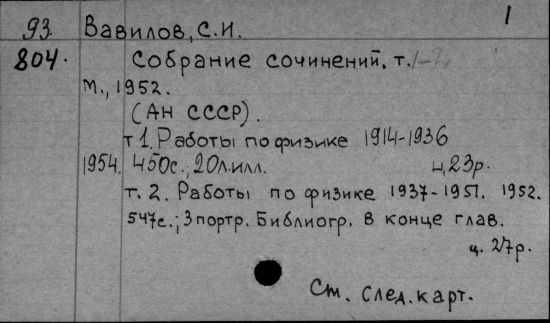 1
93 Вавилов, С.И.
804. Собрание сочинений, т. 1-2,
М., 1952.
(АН СССР).
т 1. Работы по физике 1914-1936
1954. 450с., 20л.илл. ц. 23р.
т. 2. Работы по физике 1937-1951. 1952.
547с.; 3 портр. Библиогр. в конце глав.
ц. 27р.
См. след. карт.